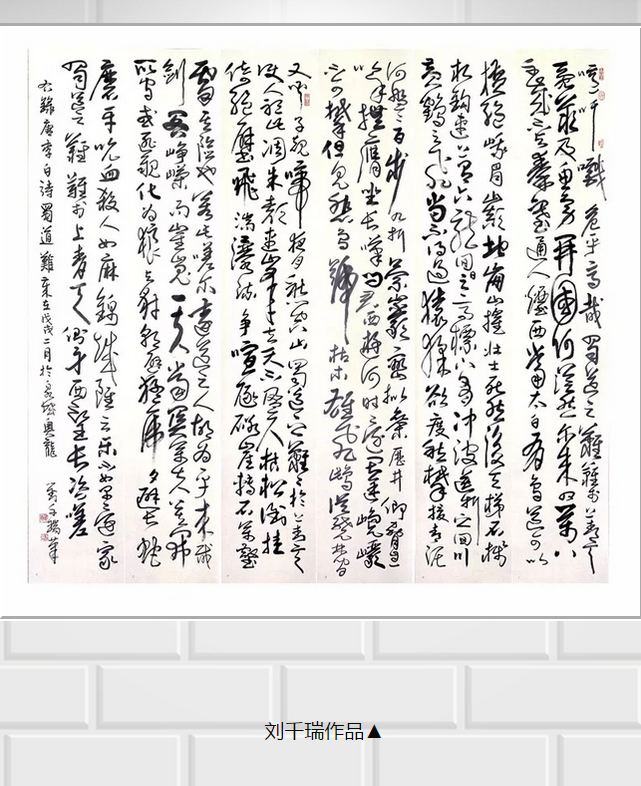 噫吁戲危乎高哉蜀道之難難於上青天
蠶叢及魚鳧開國何茫然尔来四萬八
千歲不與秦塞通人煙西當太白有鳥道可以
橫絕峨眉巔地崩山摧壯士死然後天梯石棧
相鉤連上有六龍回日之高標下有冲波逆折之回川
黃鶴之飛尚不得過猿猱欲度愁攀援青泥
何盤盤百步九折縈巖巒捫參歷井仰脅息
以手撫膺坐長嘆問君西遊何時還畏途巉巖
不可攀但見悲鳥號枯木雄飛雌從繞林間
又聞子規啼夜月愁空山蜀道之難難於上青天
使人聽此凋朱顏連峰去天不盈尺枯松倒挂
倚絕壁飛湍瀑流爭喧豗砯崖轉石萬壑
雷其險也若此嗟尔遠道之人胡為乎來哉
劍閣崢嶸而崔嵬一夫當關萬夫莫開
所守或匪親化為狼與豺朝避猛虎夕避長蛇
磨牙吮血殺人如麻錦城雖云樂不如早還家
蜀道之難難於上青天側身西望長咨嗟
右錄唐李白诗蜀道難歲在戊戌二月於京城奧龍
劉千瑞筆
刘千瑞作品▲